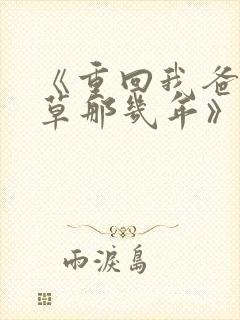 《重回我爸
草那幾年》
雨淚島